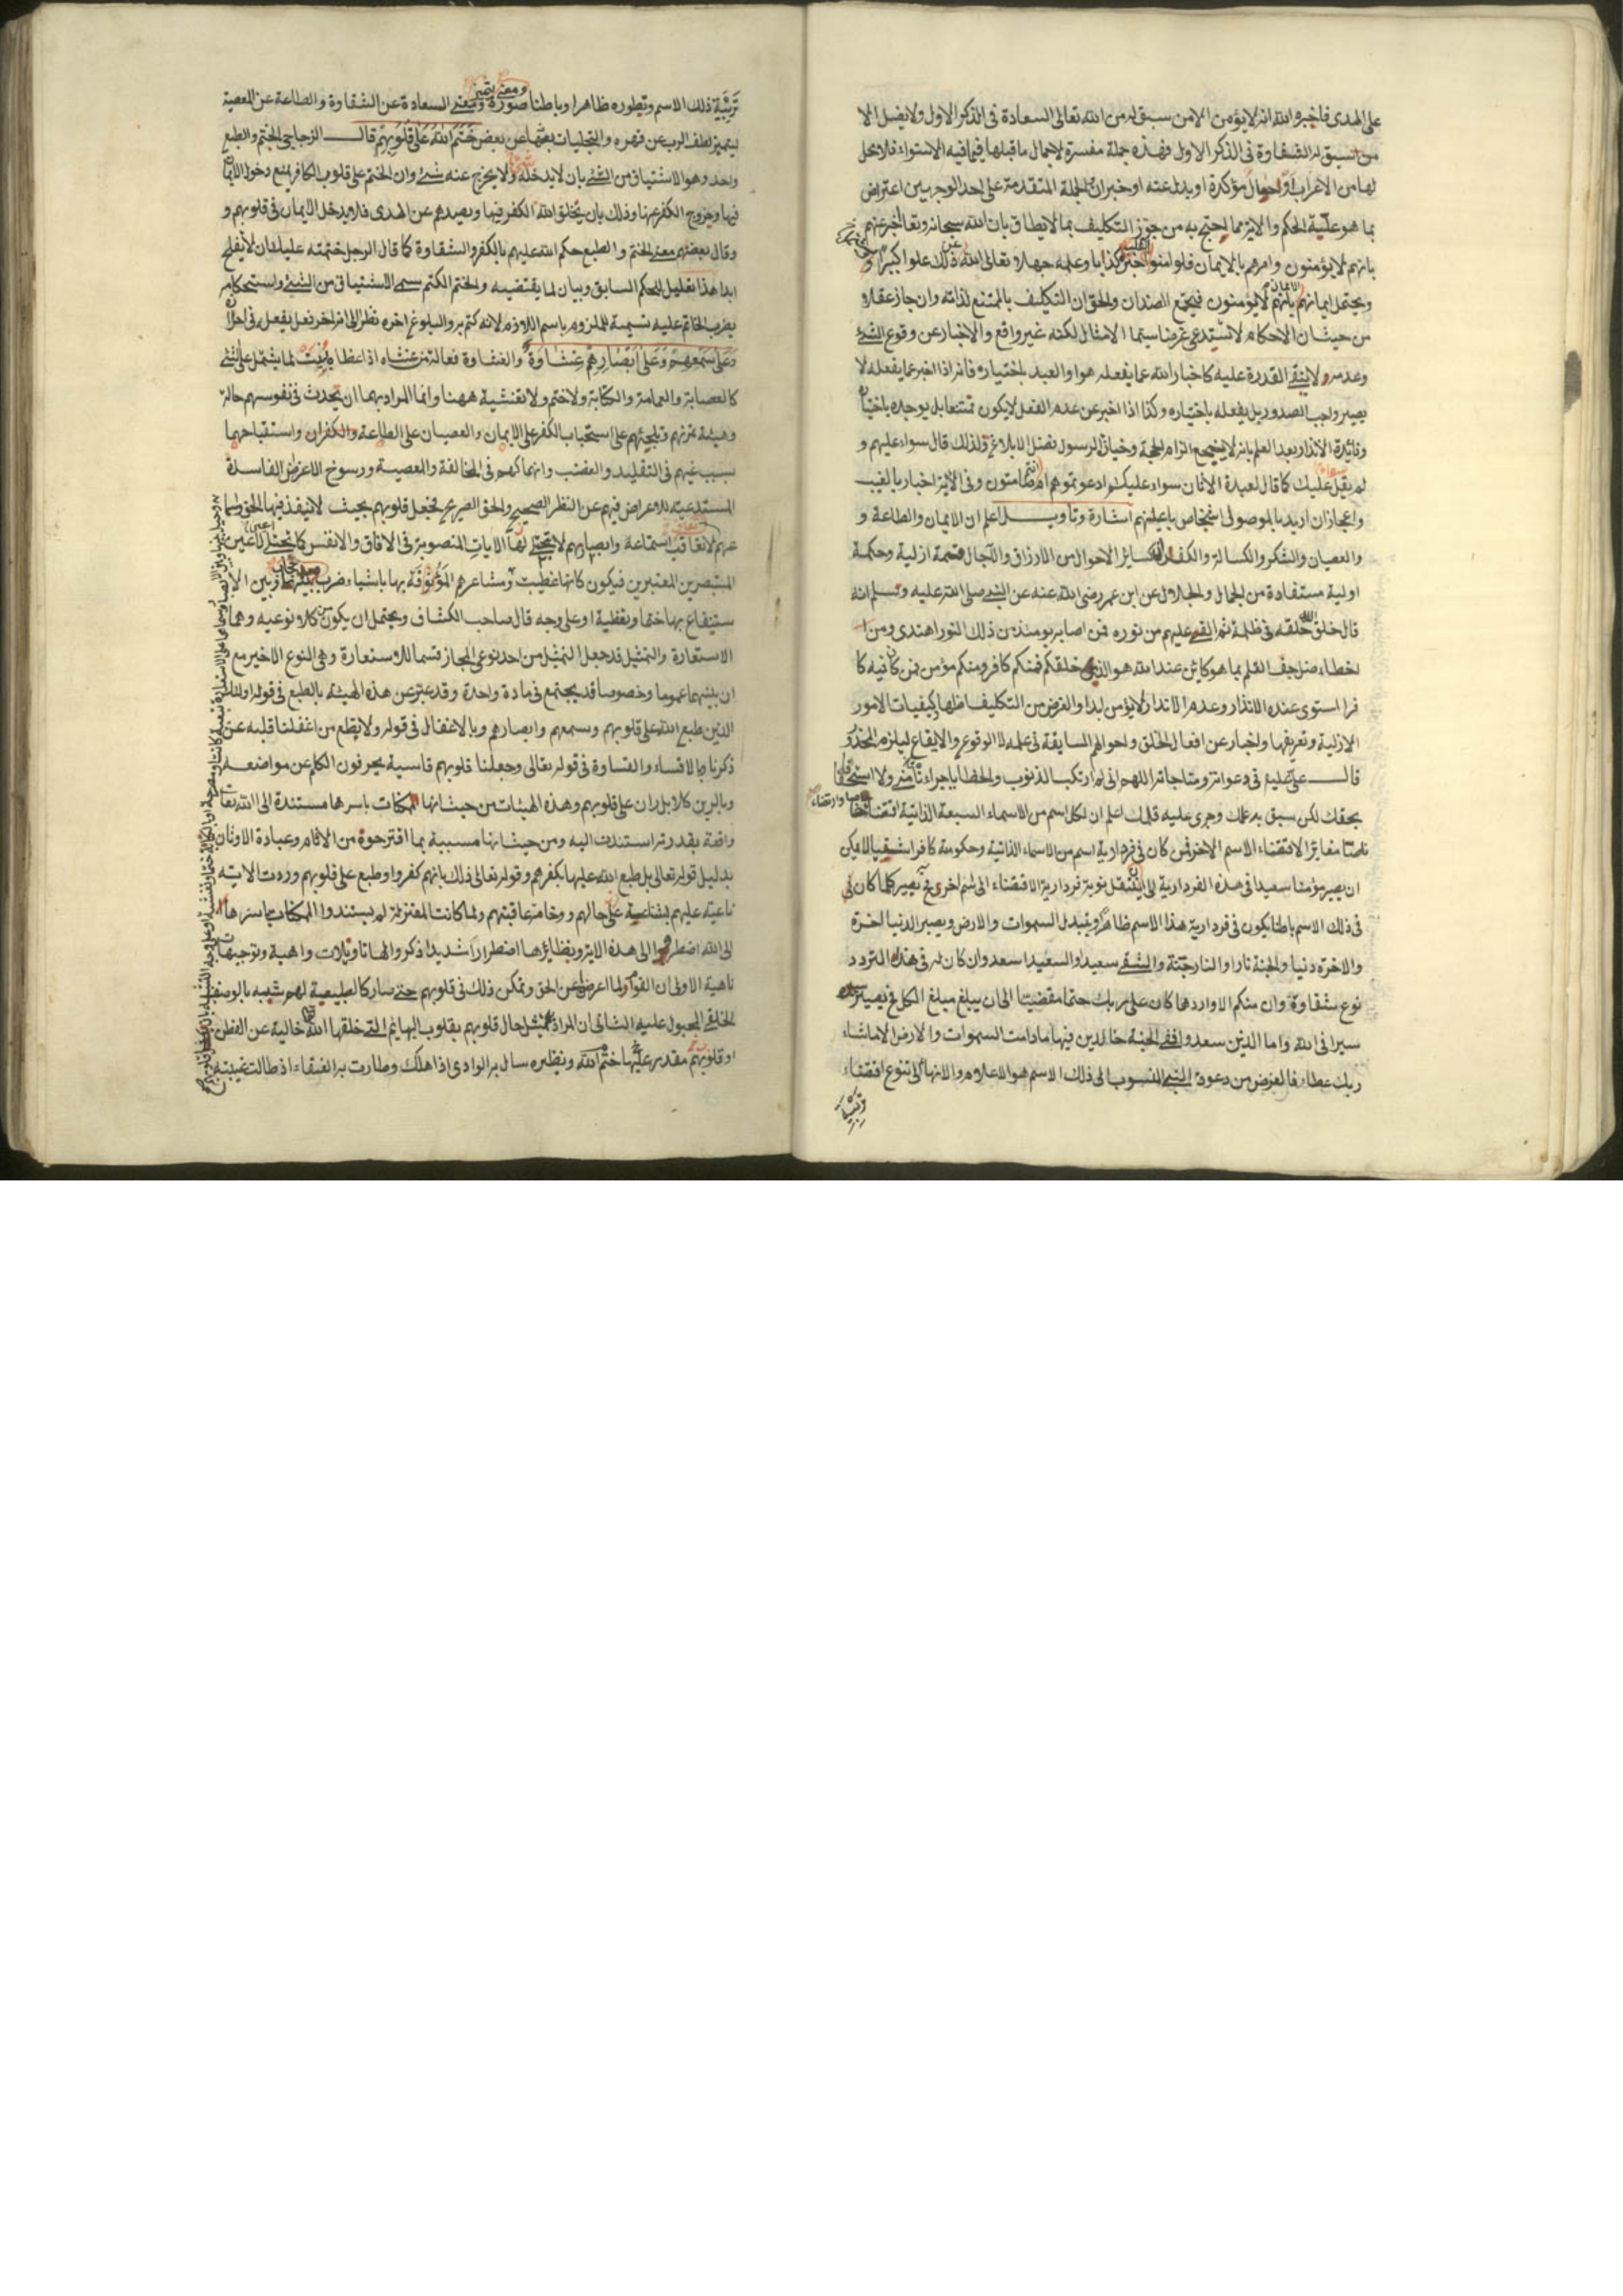 على الهدى فاخبره الله انه لا يؤمن الا من سبق له من الله تعالى السعادة فى الذكر الاول ولا يضل الا
من سبق له الشقاوة فى الذكر الاول فهذه جملة مفسرة لاجمال ما قبلها فيما فيه الاستواء فلا محل
لها من الاعراب او حال مؤكدة او بدل عنه او خبر ان والجملة المتقدمة على احد الوجهين اعتراض
بما هو علية الحكم والاية مما احتج به من جوز التكليف بما لا يطاق بان الله سبحانه وتعالى اخبر عنهم
بانهم لا يؤمنون وامرهم بالايمان فلو امنوا انقلب خبره كذبا وعلمه جهلا وتعالى الله عن ذلك علوا كبيرا
ويحتمل ايمانهم الايمان بانهم لا يؤمنون فيجتمع الضدان والحق ان التكليف بالممتنع لذاته وان جاز عقلا
من حيث ان الاحكام لا تستدعى غرضا سيما الامتثال لكنه غير واقع والاخبار عن وقوع الشئ
وعدمه لا ينفى القدرة عليه كاخبار الله عما يفعله هو او العبد باختياره فانه اذا اخبر عما يفعله لا
يصير واجب الصدور بل يفعله باختياره وكذا اذا اخبر عن عدم الفعل لا يكون ممتنعا بل يوجده باختيار
وفائدة الانذار بعد العلم بانه لا ينجع الزام الحجة وحيازة الرسول فضل الابلاغ ولذلك قال سواء عليهم و
لم يقل سواء عليك كما قال لعبدة الاوثان سواء عليكم ادعوتموهم ام انتم صامتون وفى الاية اخبار بالغيب
واعجاز ان اريد بالموصول اشخاص باعيانهم اشارة وتأويل اعلم ان الايمان والطاعة و
والعصيان والشكر والكسالة والكفر كسائر الاحوال من الارزاق والآجال قسمة ازلية وحكمة
اولية مستفادة من الجمال والجلال عن ابن عمر رضى الله عنه عن النبى صلى الله عليه وسلم انه
قال خلق الله خلقه فى ظلمة ثم القى عليهم من نوره فمن اصابه يومئذ من ذلك النور اهتدى ومن
اخطاء ضل جف القلم بما هو كائن عند الله هو الذى خلقكم فمنكم كافر ومنكم مؤمن فمن كان فيه
استوى عنده الانذار وعدم الانذار لا يؤمن ابدا والغرض من التكليف اظهار كيفيات الامور
الازلية وتعريفها واخبار عن افعال الخلق واحوالهم السابقة فى علمه لا الوقوع والايقاع ليلزم
قال على فى دعواته ومناجاته اللهم انى لم ارتكب الذنوب والخطايا
بحقك لكن سبق به علمك وجرى عليه قلمك اعلم ان لكل اسم من الاسماء السبعة الذاتية اقتضاء
مغايرا لاقتضاء الاسم الاخر فمن كان فى فردارية اسم من الاسماء الذاتية وحكومة كافرا شقيا لا يمكن
ان يصير مؤمنا سعيدا فى هذه الفردارية الى ان ينتقل نوبة فردارية الاقتضاء الى اسم اخر فح يصير كلما كان
فى ذلك الاسم باطنا يكون فى فردارية هذا الاسم ظاهرا وتبدل السموات والارض ويصير الدنيا اخرة
والاخرة دنيا والجنة نارا والنار جنة والشقى سعيدا والسعيد اسعد وان كان له فى هذا التردد
نوع شقاوة وان منكم الا واردها كان على ربك حتما مقضيا الى ان يبلغ مبلغ الكل فح يصير
سيرا فى الله واما الذين سعدوا ففى الجنة خالدين فيها ما دامت السموات والارض الا ما شاء
ربك عطاء فالغرض من دعوة النبى المنسوب الى ذلك الاسم هو الاعلام والانهاء الى تنوع اقتضاء
تربية
تربية ذلك الاسم وتطوره ظاهرا وباطنا صورة ومعنى يتميز السعادة عن الشقاوة والطاعة عن المعصية
ليتميز لطف الرب عن قهره والتجليات بعضها عن بعض ختم الله على قلوبهم قال الزجاجى الختم والطبع
واحد وهو الاستيثاق من الشئ بان لا يدخله ولا يخرج عنه شئ وان الختم على قلوب الكافر يمنع دخول الايمان
فيها وخروج الكفر عنها وذلك بان يخلق الله الكفر فيها ويصدهم عن الهدى فلا يدخل الايمان فى قلوبهم و
وقال بعضهم معنى الختم والطبع حكم الله عليهم بالكفر والشقاوة كما قال الرجل ختمت عليك ان لا يفلح
ابدا هذا تعليل للحكم السابق وبيان لما يقتضيه والختم الكتم سمى الاستيثاق من الشئ واستحكامه
بضرب الخاتم عليه تسمية للملزوم باسم اللازم لانه كتم به والبلوغ اخره نظرا الى انه اخر فعل يفعل فى
وعلى سمعهم وعلى ابصارهم غشاوة والغشاوة فعالة من غشاه اذا غطاه بنيت لما يشتمل على الشئ
كالعصابة والعمامة والكتابة ولا ختم ولا تغشية ههنا وانما المراد بهما ان يحدث فى نفوسهم حالة
وهيئة تمرنهم وتلجئهم على استحباب الكفر على الايمان والعصيان على الطاعة والكفران واستقباحهما
بسبب غيهم فى التقليد والتعصب وانهماكهم فى المخالفة والمعصية ورسوخ الاعراض الفاسدة
المستدعية للاعراض فيهم عن النظر الصحيح والحق الصريح فيجعل قلوبهم بحيث لا ينفذ فيها الحق
تعاف استماعه وابصارهم لا تجتلى لها الايات المنصوبة فى الافاق والانفس كما تجتليها اعين
المستبصرين المعتبرين فيكون كانها غطيت ومشاعرهم المؤوفة بها باشياء ضرب حجاب بينها وبين
ستنفاع بها ختما وتغطية او على وجه قال صاحب الكشاف ويحتمل ان يكون من كلا نوعيه وهما
الاستعارة والتمثيل قد جعل التمثيل من احد نوعى المجاز قسما للاستعارة وهى النوع الاخير مع
ان بينهما عموما وخصوصا قد يجتمع فى مادة واحدة وقد عبر عن هذه الهيئة بالطبع فى قوله اولئك
الذين طبع الله على قلوبهم وسمعهم وابصارهم وبالاغفال فى قوله ولا تطع من اغفلنا قلبه عن
ذكرنا وبالاقساء والقساوة فى قوله تعالى وجعلنا قلوبهم قاسية يحرفون الكلم عن مواضعه
وبالرين كلا بل ران على قلوبهم وهذه الهيئات من حيث انها الممكنات باسرها مستندة الى الله تعالى
واقعة بقدرته استندت اليه ومن حيث انها مسببة بما اقترحوه من الاثام وعبادة الاوثان
بدليل قوله تعالى بل طبع الله عليها بكفرهم وقوله تعالى ذلك بانهم كفروا وطبع على قلوبهم وردت الاية
ناعية عليهم بشناعة على حالهم ووخامة عاقبتهم ولما كانت المعتزلة لم يستندوا الممكنات باسرها
الى الله اضطروا الى هذه الاية ونظائرها اضطرارا شديدا ذكروا لها تاويلات واهية وتوجيهات
ناهية الاول ان القوم لما اعرضوا عن الحق وتمكن ذلك فى قلوبهم حتى صار كالطبيعية لهم شبه بالوصف
الخلقى المجبول عليه الثانى ان المراد تمثيل حال قلوبهم بقلوب البهائم التى خلقها الله خالية عن الفطن
او قلوبهم مقدر عليها ختم الله ونظيره سال به الوادى اذا هلك وطارت به العنقاء اذ طالت غيبته